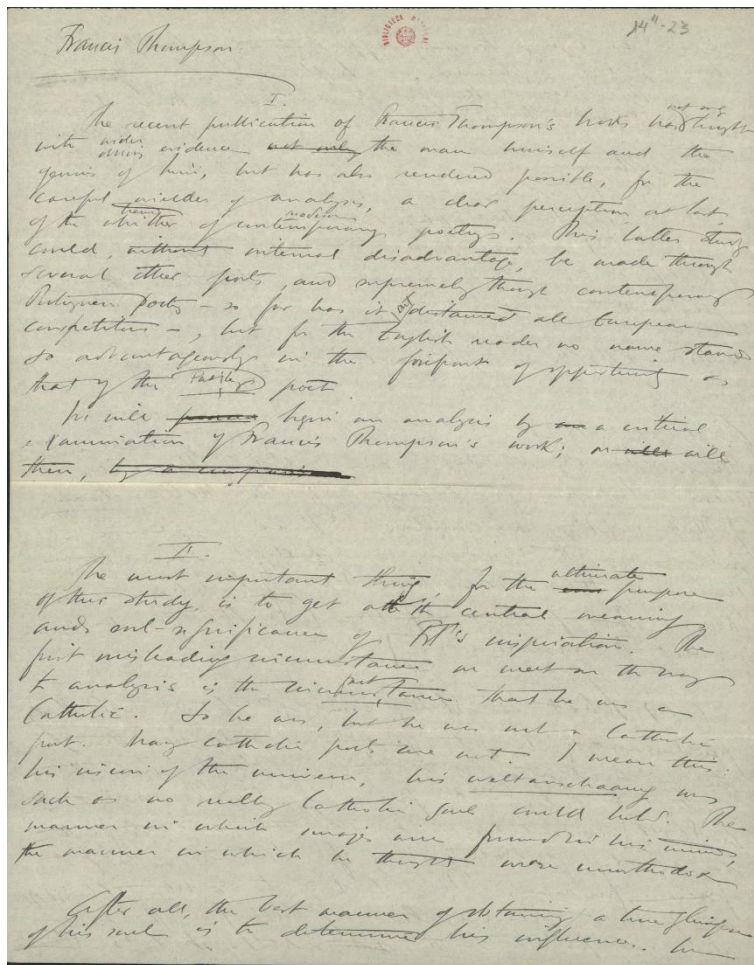 14⁴-23
Francis Thompson.
I.
The recent publication of Francis Thompson's works has not only brought
with wider evidence not only the man himself and the
genius of him, but has also rendered possible, for the
careful of analysis, a clear perception at last
of the whither of contemporary modern poetry. This latter study
could, without internal disadvantage, be made through
several other poets, and supremely through contemporary
Portuguese poets — so far has it distanced all European
competitors —, but for the English reader no name stands
so advantageously in the forefront of opportunity as
that of the poet.
We will begin an analysis by a critical
examination of Francis Thompson's work; we will will
then, by a comparison
II.
The most important thing, for the ultimate purpose
of this study, is to get at the central meaning
and soul-significance of FT's inspiration. The
first misleading circumstance we meet on the way
to analysis is the circumstance that he was a
Catholic. So he was, but he was not a Catholic
poet. Many catholic poets are not. I mean this:
his vision of the universe, his weltanschauung was
such as no really Catholic soul could hold. The
manner in which images are formed in his mind,
the manner in which he thought were unorthodox
After all, the best manner of obtaining a true glimpse
of his soul is to determine his influences.